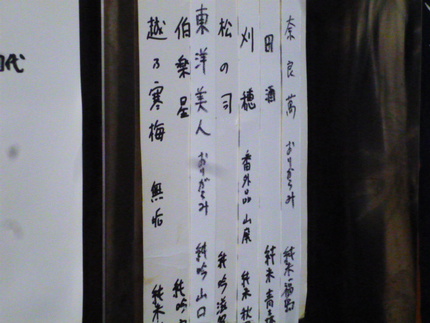 奈良萬 おりがらみ 純米 福島
田酒 純米 青森
刈穂 番外品 山廃 純米 秋
松の司 純吟 滋賀
東洋美人 おりがらみ 純吟 山口
伯楽星 純吟
越乃寒梅 無垢 純米
代